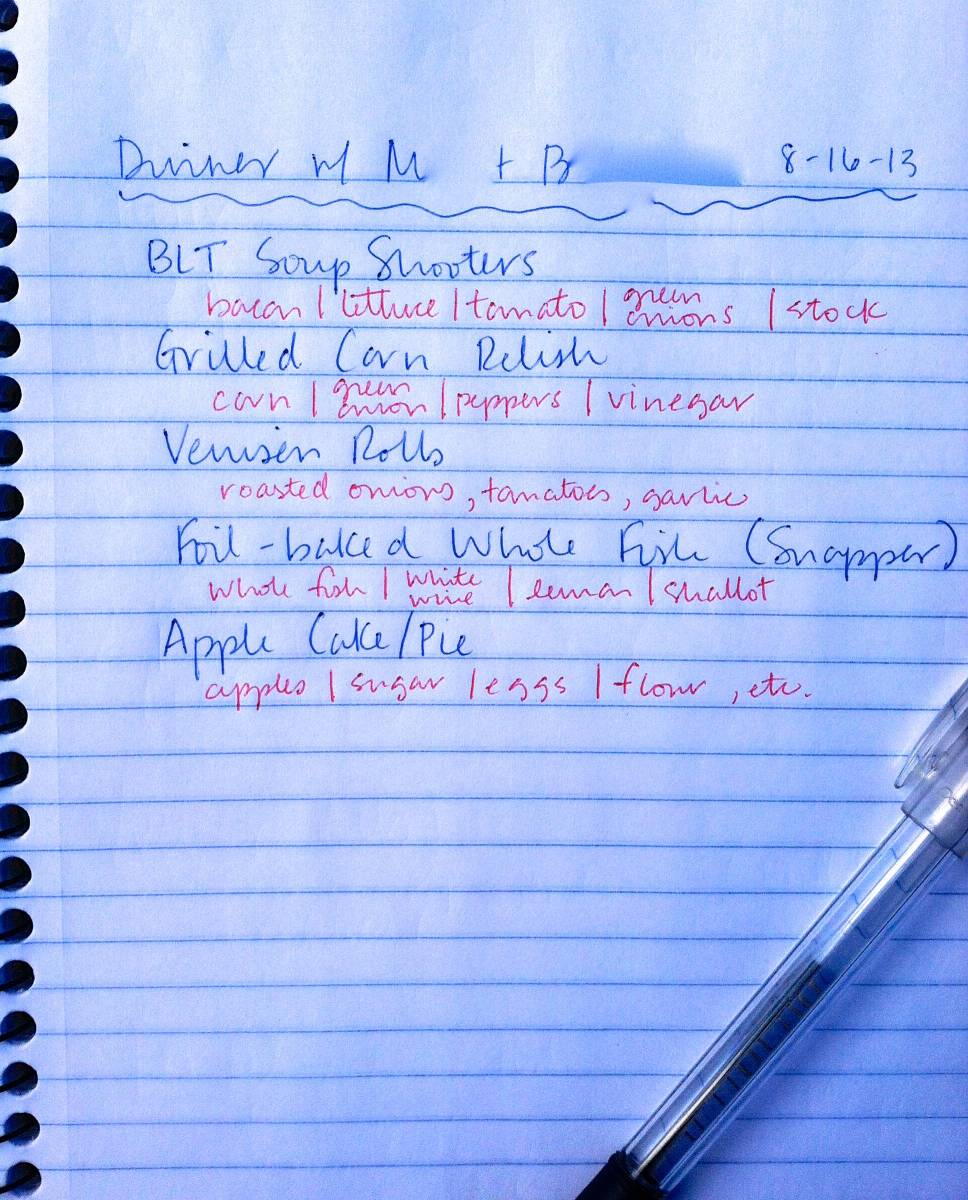 Dinner w/ M + B 8-16-13
BLT Soup Shooters
bacon | lettuce | tomato | green onions | stock
Grilled Corn Relish
corn | green onion | peppers | vinegar
Venison Rolls
roasted onions, tomatoes, garlic
Foil-baked Whole Fish (Snapper)
whole fish | white wine | lemon | shallot
Apple Cake/Pie
apples | sugar | eggs | flour, etc.